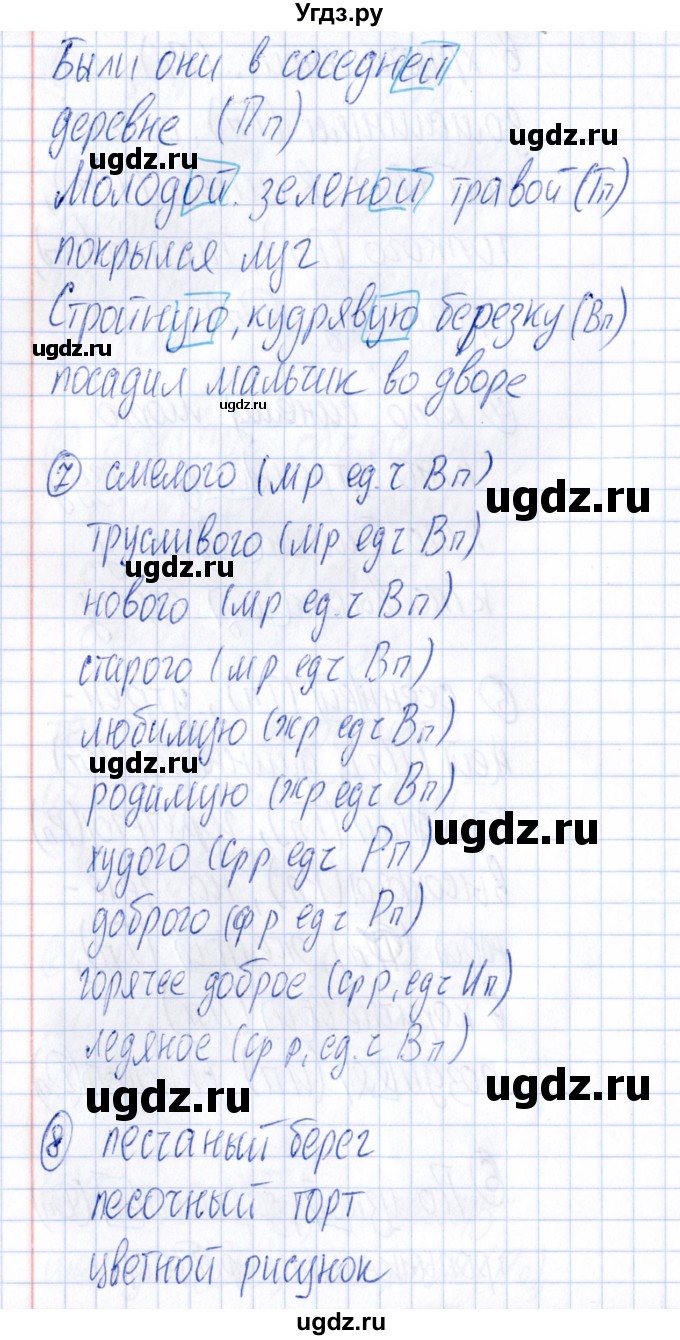 Угдз.ру
Были они в соседней
деревне (Пп)
ugdz.ru
Молодой. зеленой травой (Тп)
покрылся луг
Стройную, кудрявую березку (Вп)
ugdz.ru
посадил мальчик во дворе
ugdz.ru
7 смелого (мр ед.ч Вп)
ugdz.ru
трусливого (мр едч Вп)
ugdz.ru
нового (мр ед.ч Вп)
старого (мр едч Вп)
любимую (жр едч Вп)
ugdz.ru
родимую (жр едч Вп)
ugdz.ru
худого (ср р едч Рп)
доброго (ф р едч Рп)
горячее доброе (ср р, едч Ип)
ледяное (ср р, ед.ч Вп)
ugdz.ru
ugdz.ru
8 песчаный берег
песочный торт
цветной рисунок
ugdz.ru
ugdz.ru